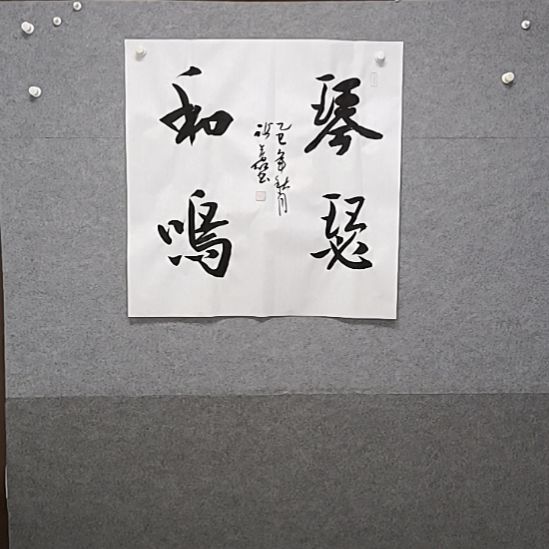 琴瑟
和鳴
乙巳年秋月